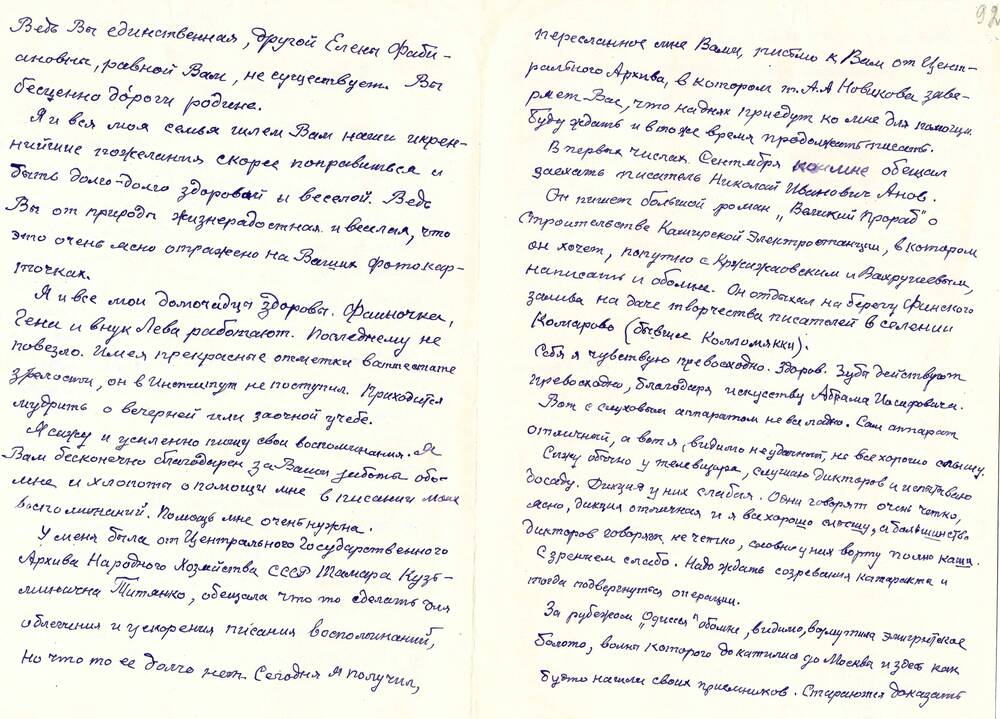 Ведь Вы единственная, другой Елены Фаби-
ановны, равной Вам, не существует. Вы
бесценно дороги родине.
Я и вся моя семья шлем Вам наши искрен-
нийшие пожелания скорее поправиться и
быть долго-долго здоровой и веселой. Ведь
Вы от природы жизнерадостная и веселая, что
это очень ясно отражено на Ваших фотокар-
точках.
Я и все мои домочадцы здоровы. Фаиночка,
Гена и внук Лева работают. Последнему не
повезло. Имея прекрасные отметки в аттестате
зрелости, он в Институт не поступил. Приходится
мудрить о вечерней или заочной учебе.
Я сижу и усиленно пишу свои воспоминания. Я
Вам бесконечно благодарен за Ваши заботы обо-
мне и хлопоты о помощи мне в писании моих
воспоминаний. Помощь мне очень нужна.
У меня была от Центрального Государственного
Архива Народного Хозяйства СССР Тамара Кузь-
минична Титянко, обещала что то сделать для
облегчения и ускорения писания воспоминаний,
но что то ее долго нет. Сегодня я получил,
92
пересланное мне Вами, письмо к Вам от Цент-
рального Архива, в котором т. А.А Новикова заве-
ряет Вас, что на днях приедут ко мне для помощи.
Буду ждать и в тоже время продолжать писать.
В первых числах Сентября ко мне обещал
заехать писатель Николай Иванович Анов.
Он пишет большой роман „Великий Прораб" о
строительстве Каширской Электростанции, в котором
он хочет, попутно с Кржижановским и Вахрушевым,
написать и обо мне. Он отдыхал на берегу Финского
залива на даче творчества писателей в селении
Комарово (бывшие Колломякки).
Себя я чувствую превосходно. Здоров. Зубы действуют
превосходно, благодаря искуству Абрама Иосифовича.
Вот с слуховым аппаратом не все ладно. Сам аппарат
отличный, а вот я, видимо неудачный, не все хорошо слышу.
Сижу обычно у телевизара, слушаю дикторов и испытываю
досаду. Дикция у них слабая. Одни говорят очень четко,
ясно, дикция отличная и я все хорошо слышу, а большинство
дикторов говорят не четко, словно у них во рту полно каши.
С зрением слабо. Надо ждать созревания катаракта и
тогда подвергнуться операции.
За рубежом „Одиссея" обо мне, видимо, возмутила эмигрантское
болото, волны которого докатились до Москвы и здесь как
будто нашли своих приемников. Стараются доказать